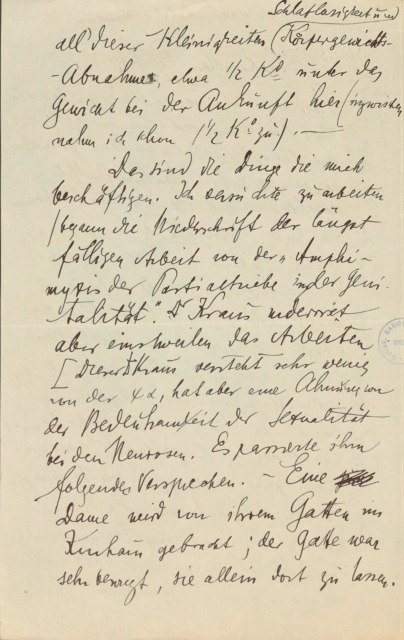 Schlaflosigkeit und
all dieser Kleinigkeiten (Körpergewichts-
-Abnahme, etwa 1/2 Ko unter das
Gewicht bei der Ankunft hier (inzwischen
nahm ich schon 1 1/2 Ko zu). —
Das sind die Dinge die mich
beschäftigen. Ich versuchte zu arbeiten
(begann die Niederschrift der längst
fälligen Arbeit von der „Amphi-
myxis der Partialtriebe in der Geni-
talität". Dr Kraus widerriet
aber einstweilen das Arbeiten
[Dieser Dr Kraus versteht sehr wenig
von der ψα, hat aber eine Ahnung von
der Bedeutsamkeit der Sexualität
bei den Neurosen. Es passierte ihm
folgendes Versprechen. – Eine
Dame wird von ihrem Gatten ins
Kurhaus gebracht; der Gatte war
sehr bewegt, sie allein dort zu lassen.